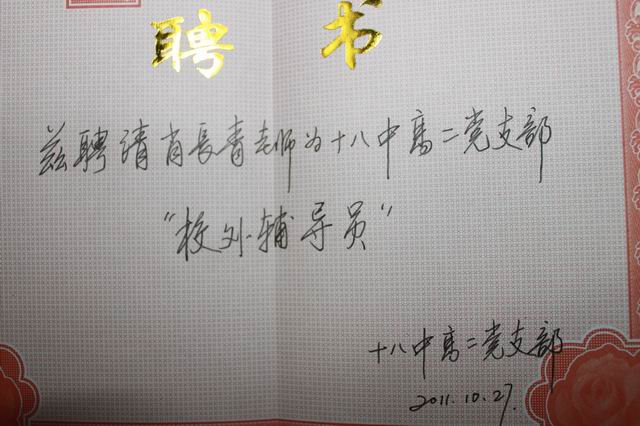 聘书
兹聘请肖長青老师为十八中高二党支部
“校外辅导员”
十八中高二党支部
2011.10.27.